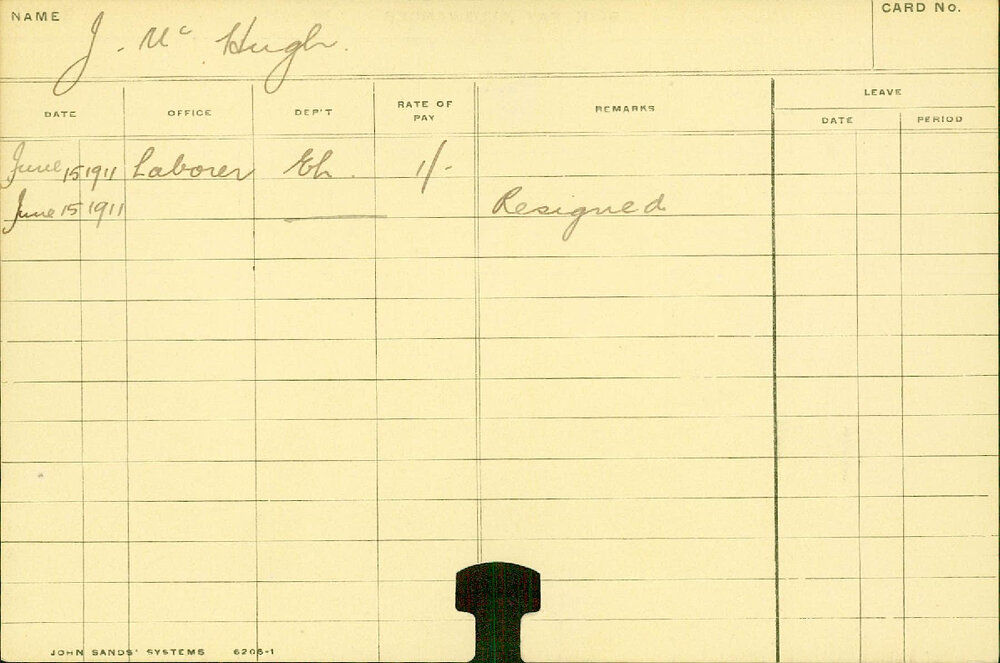 NAME J. Mc Hugh. CARD No.
LEAVE
DATE OFFICE DEP'T RATE OF PAY REMARKS DATE PERIOD
June 15 1911 Laborer 1/-
June 15 1911 Resigned
JOHN SANDS' SYSTEMS 6206-1